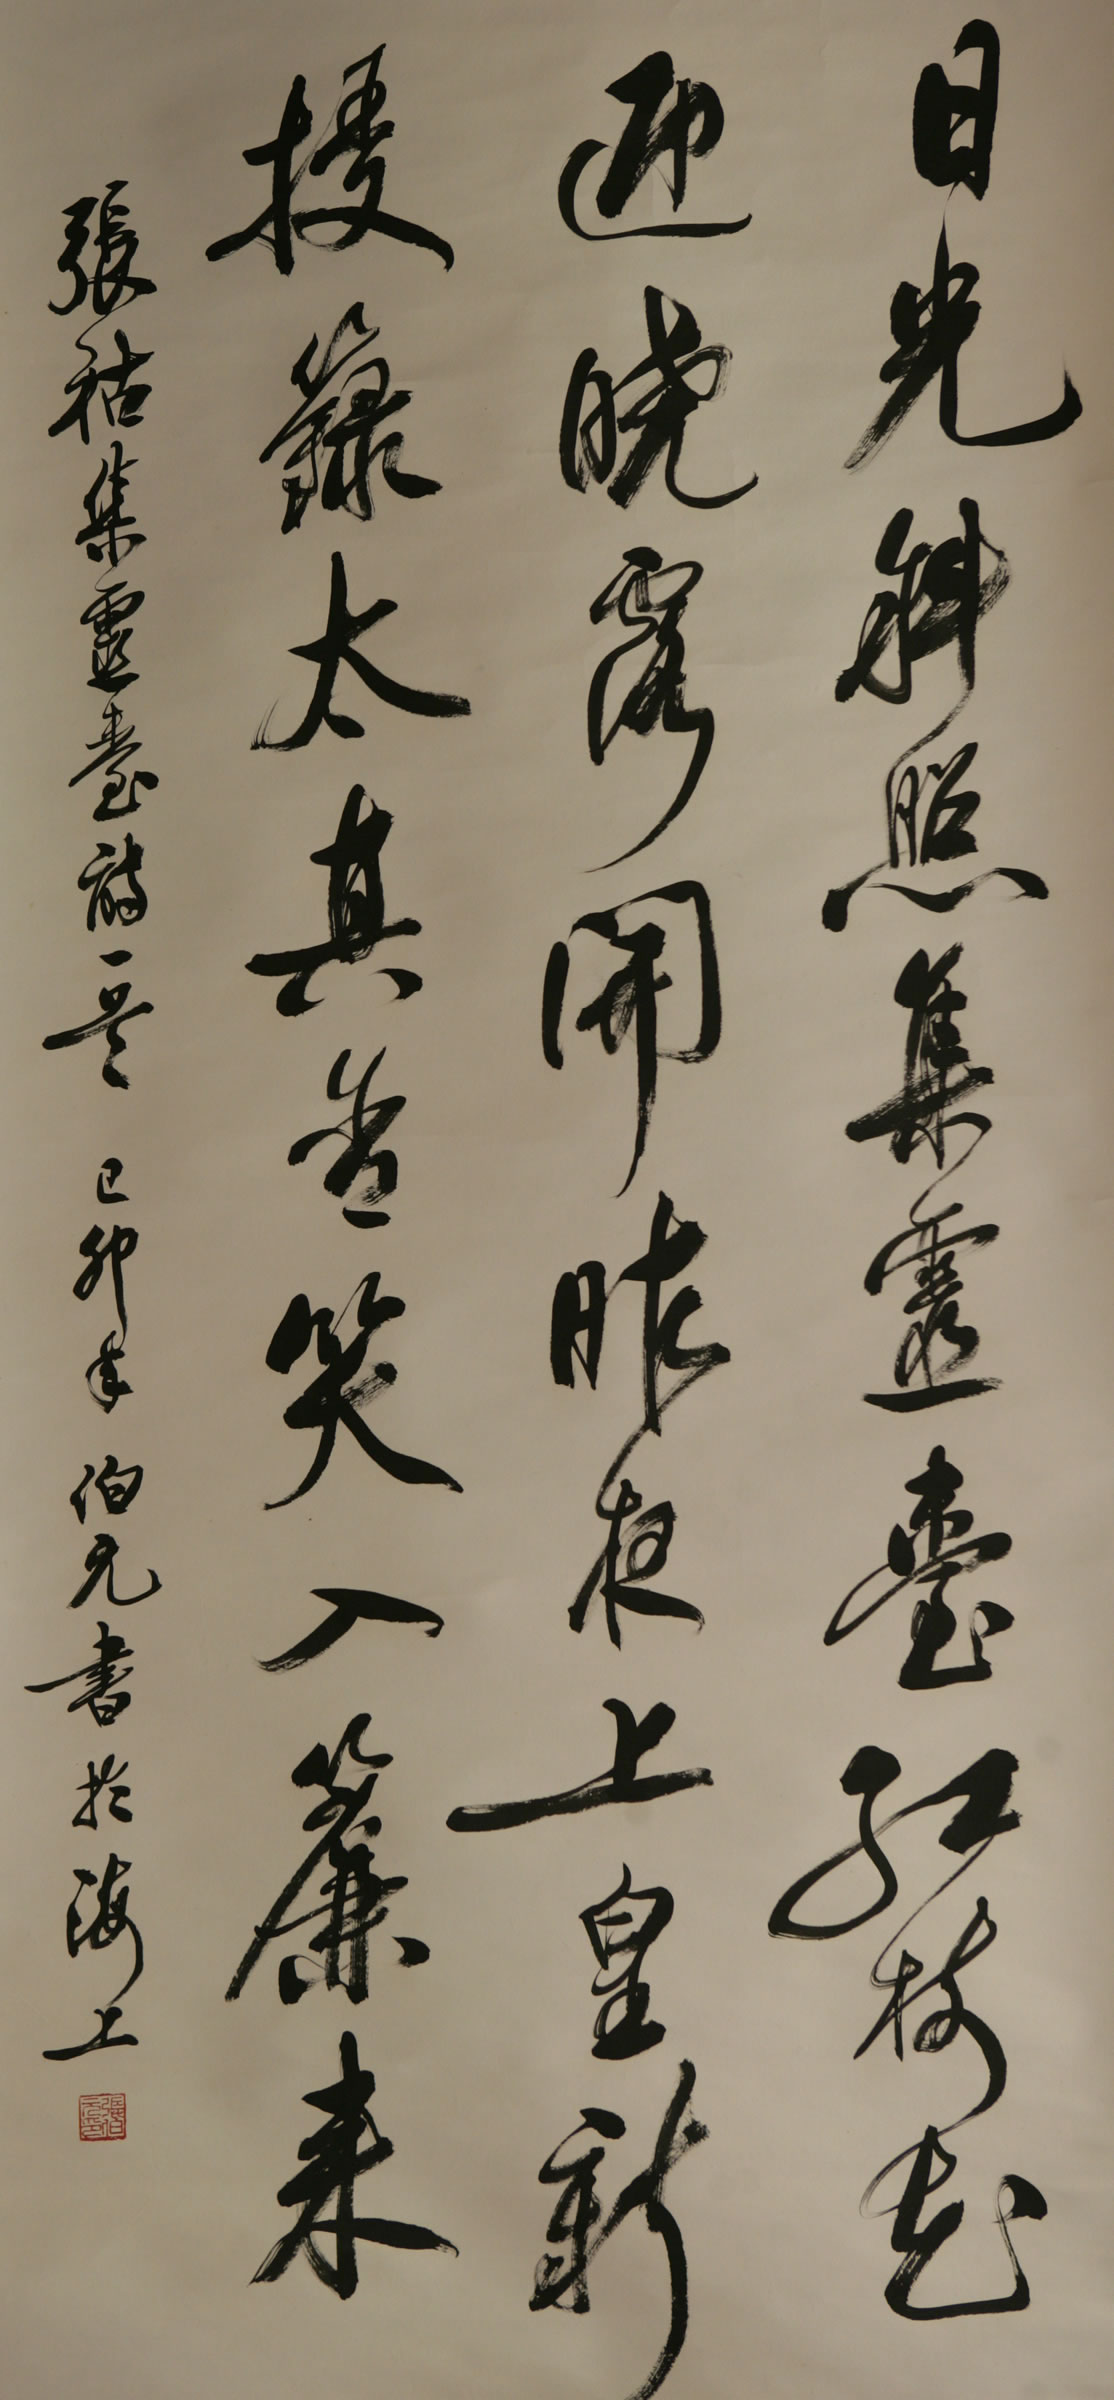 日光斜照集靈臺紅樹花
迎曉露開昨夜上皇新
授籙太真含笑入簾來
張祜集靈臺詩一首 己卯年 伯元書於海上